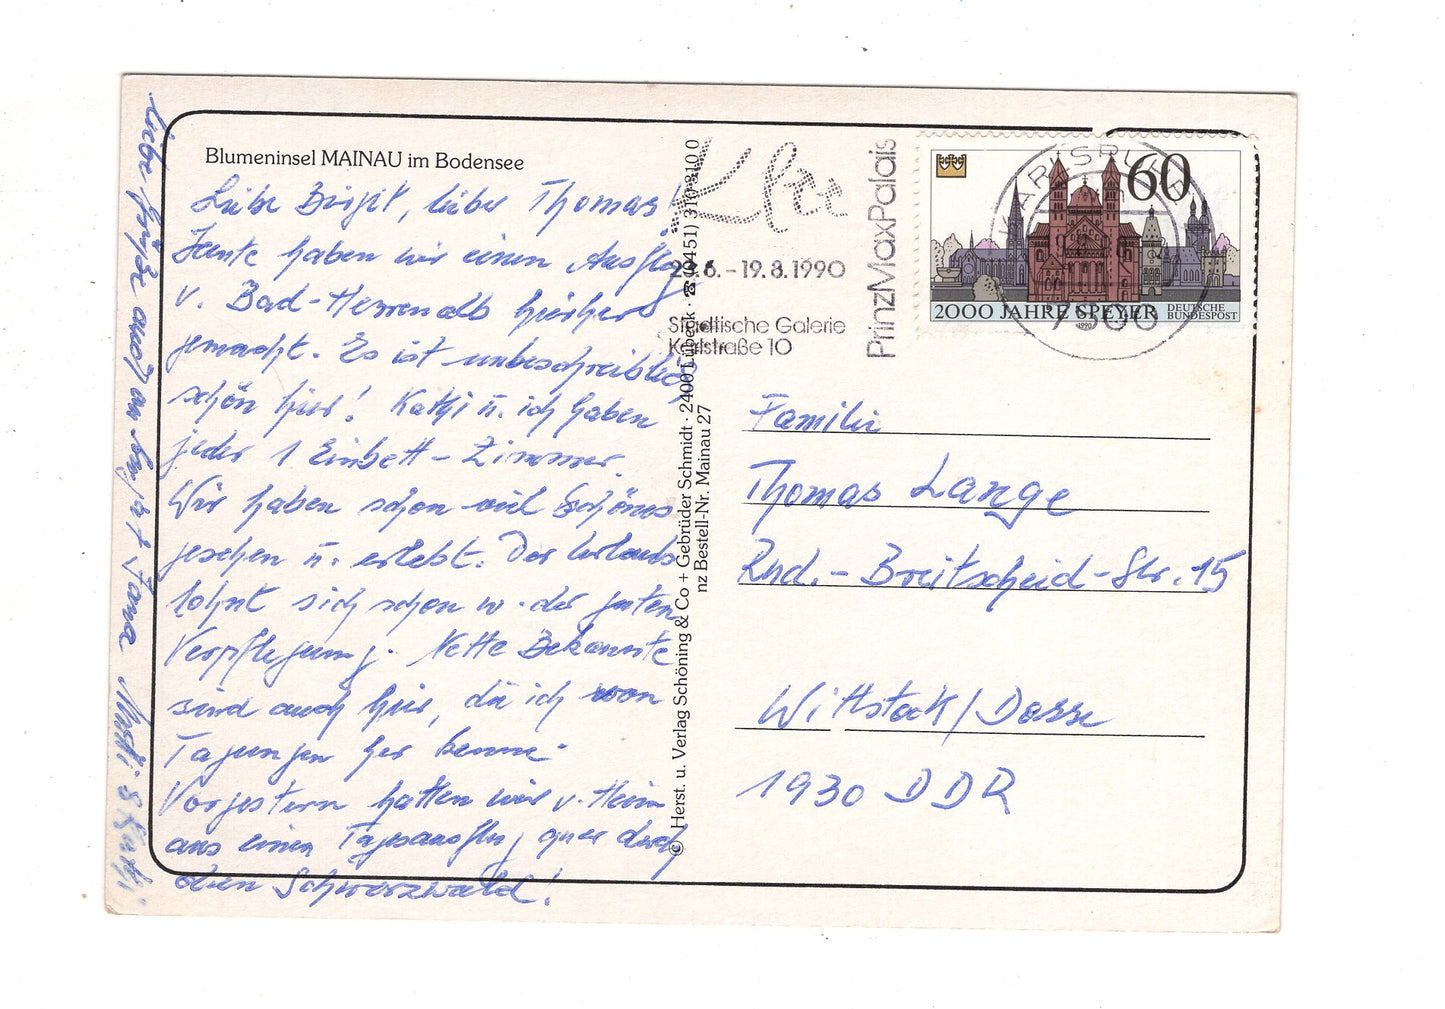 Blumeninsel MAINAU im Bodensee
Liebe Birgit, lieber Thomas!
Heute haben wir einen Ausflug
v. Bad-Herrenalb hierher
gemacht. Es ist unbeschreiblich
schön hier! Kathi u. ich haben
jeder 1 Einbett-Zimmer.
Wir haben schon viel Schönes
gesehen u. erlebt. Der Urlaub
lohnt sich schon w. der guten
Verpflegung. Nette Bekannte
sind auch hier, die ich von
Tagungen her kenne.
Vorgestern hatten wir v. Heim
aus einen Tagesausflug quer durch
den Schwarzwald!
Liebe Grüße auch an
© Herst. u. Verlag Schöning & Co + Gebrüder Schmidt · 2400 Lübeck · ☎ (0451) 310 310 0
nz Bestell-Nr. Mainau 27
Klee
29.6. - 19.8.1990
Städtische Galerie
Karlstraße 10
PrinzMaxPalais
KARLSRUHE
7500
60
2000 JAHRE SPEYER
DEUTSCHE
BUNDESPOST
1990
Familie
Thomas Lange
Rud.-Breitscheid-Str. 15
Wittstock/Dosse
1930 DDR